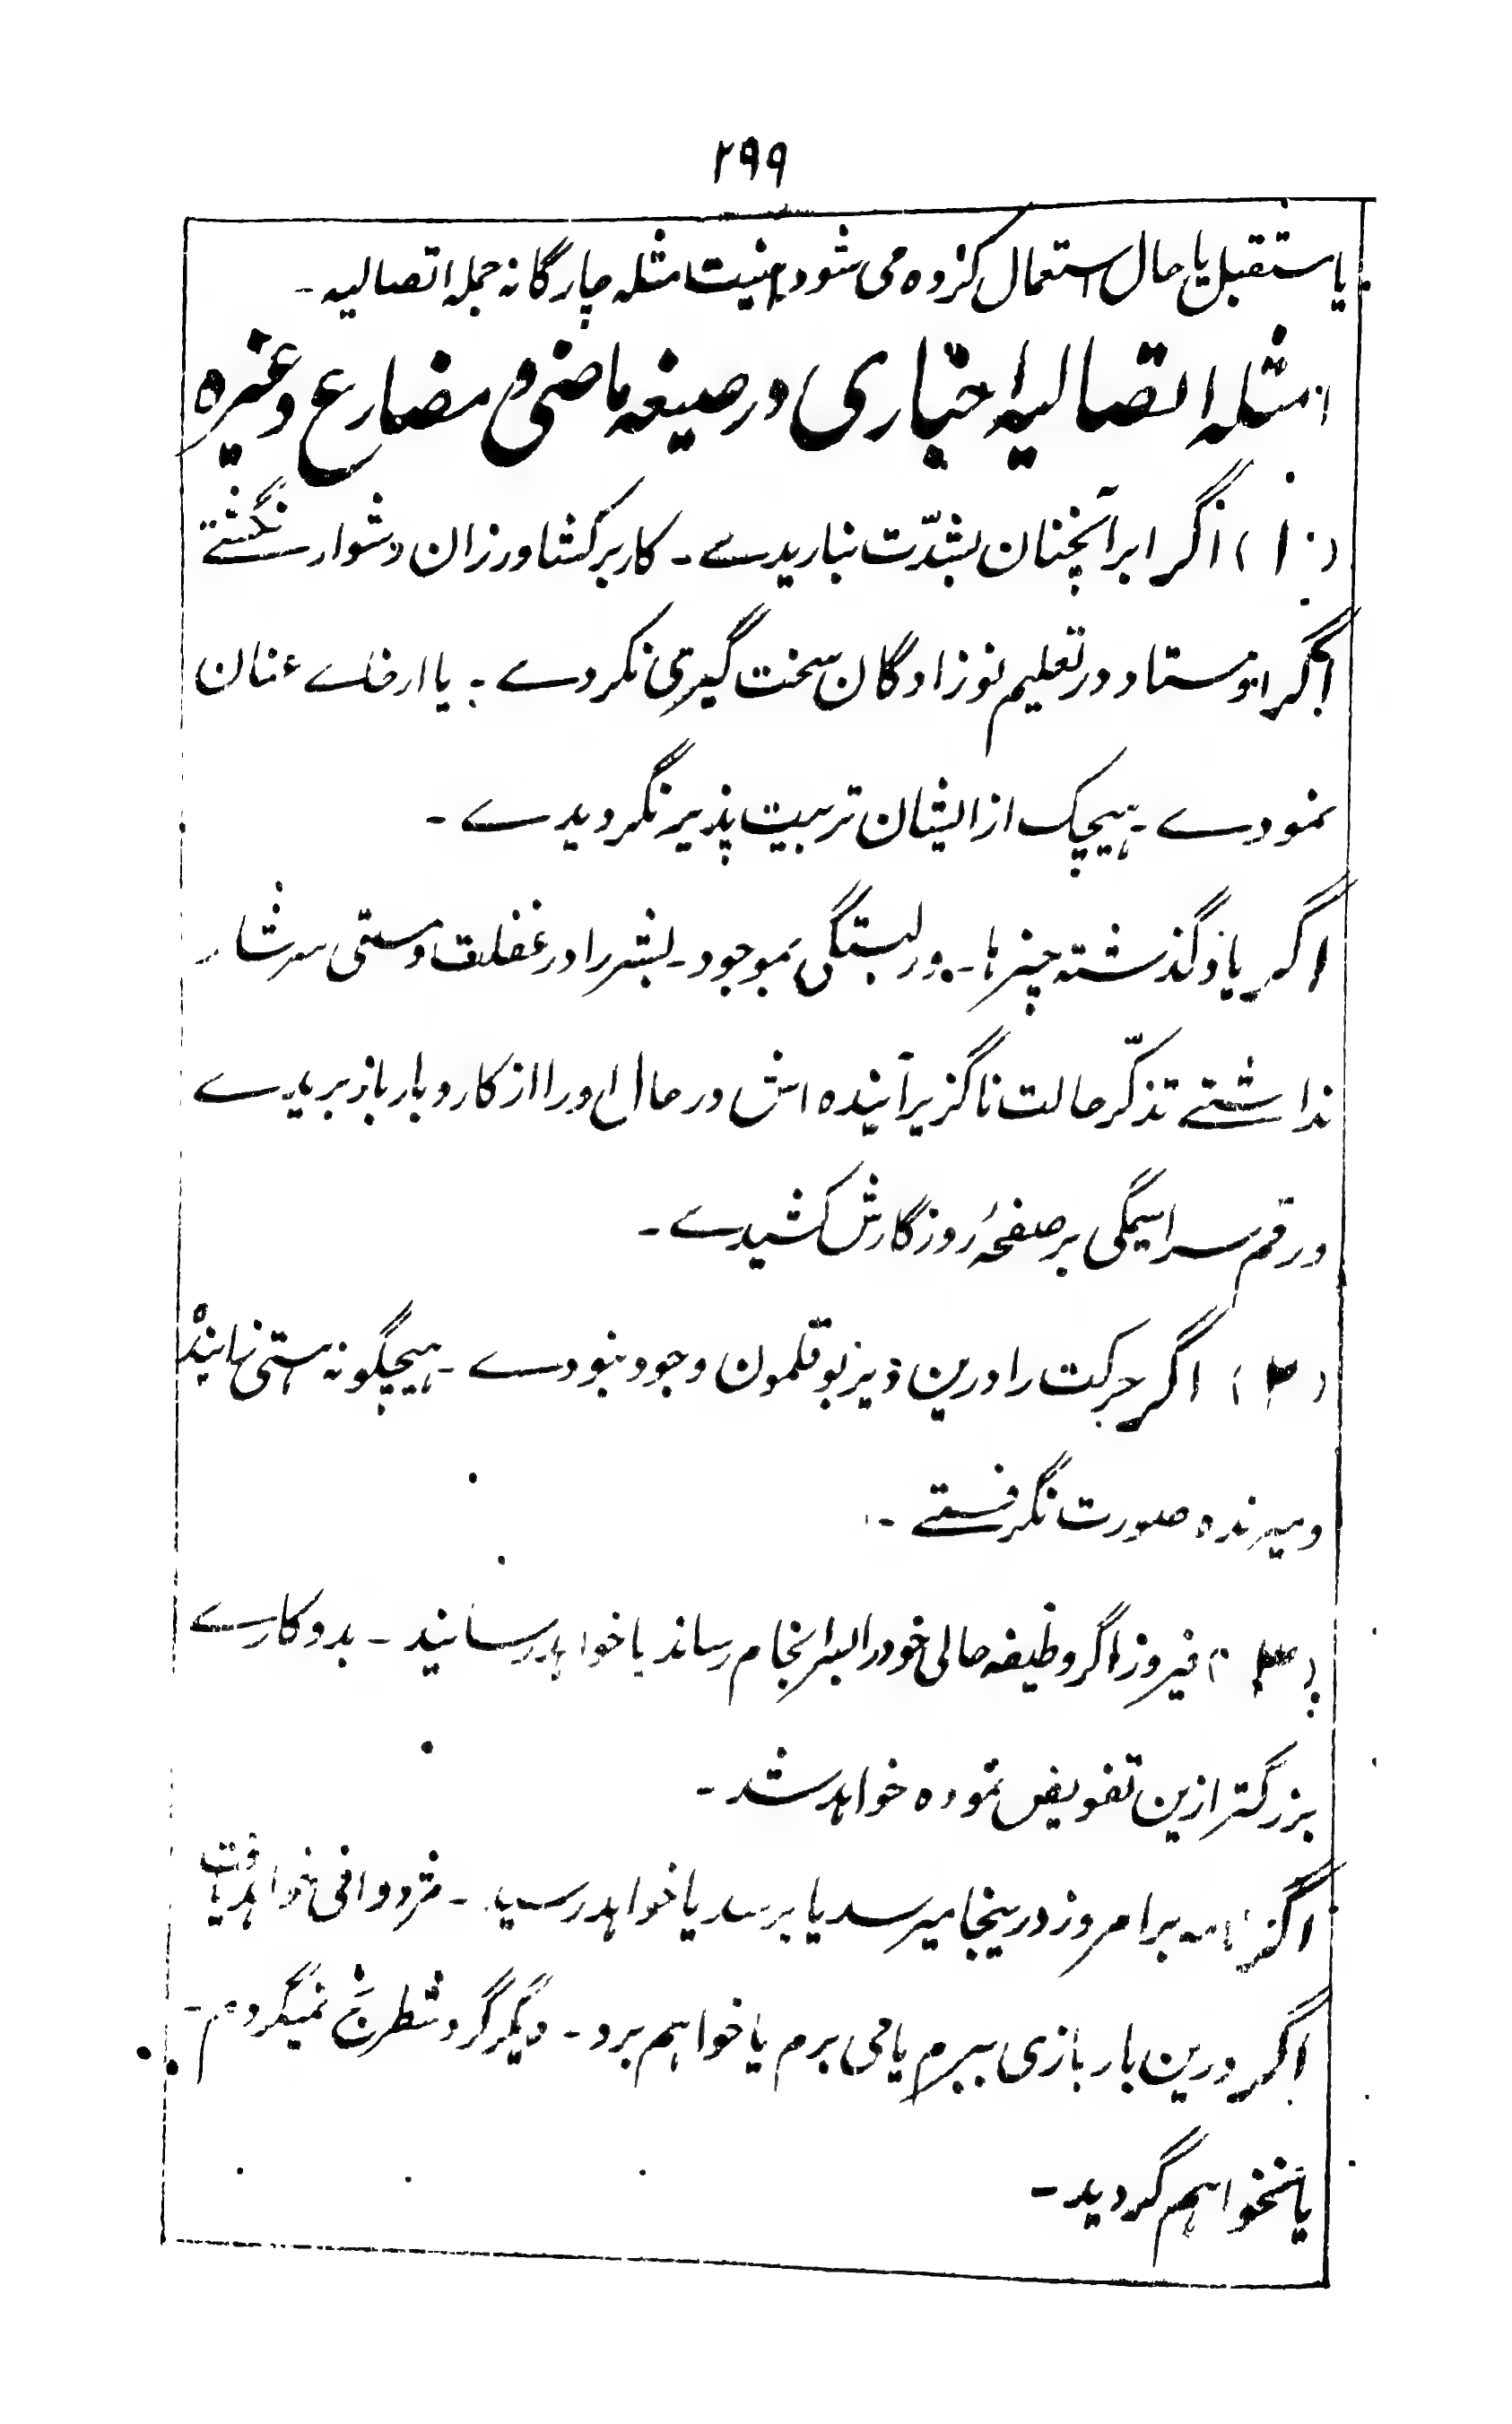 ۲۹۹
یا ستقبل یا حال استعمال کرده می شود اینست امثله چارگانه جمله اتصالیه ۔
امثله اتصالیه اخباری در صیغه ماضی و مضارع وغیره
(۱) اگر ابر آنچنان بشدّت نباریدے ۔ کار بر کشاورزان دشوار نگشتے
اگر اوستاد در تعلیم نوزادگان سخت گیری نکردے ۔ یا ارخاے عنان
نمودے ۔ ہیچیک از ایشان تربیت پذیر نگردیدے ۔
اگر یاد گذشته چیزها ۔ و دلبستگی بموجود ۔ بشر را در غفلت و مستی سرشار
نداشتے تذکّر حالت ناگزیر آینده اش در حال او را از کاروبار باز بریدے
و رقم سراسیمگی بر صفحهٔ روزگارش کشیدے ۔
(۲) اگر حرکت را درین دیز بوقلمون وجود نبودے ۔ ہیچگونه هستی زاینده
و میرنده صورت نگرفتے ۔
(۳) فیروز اگر وظیفه حالی خود را بسرانجام رساند یا خواهد رسانید ۔ بدو کارے
بزرگتر ازین تفویض نموده خواهد شد ۔
اگر نامه بر امروز درینجا میرسد یا برسد یا خواهد رسید ۔ مزد وافی خواهد یافت
اگر درین بار بازی ببرم یا می برم یا خواهم برد ۔ دیگر گرد شطرنج نمیگردم ۔
یا نخواهم گردید ۔